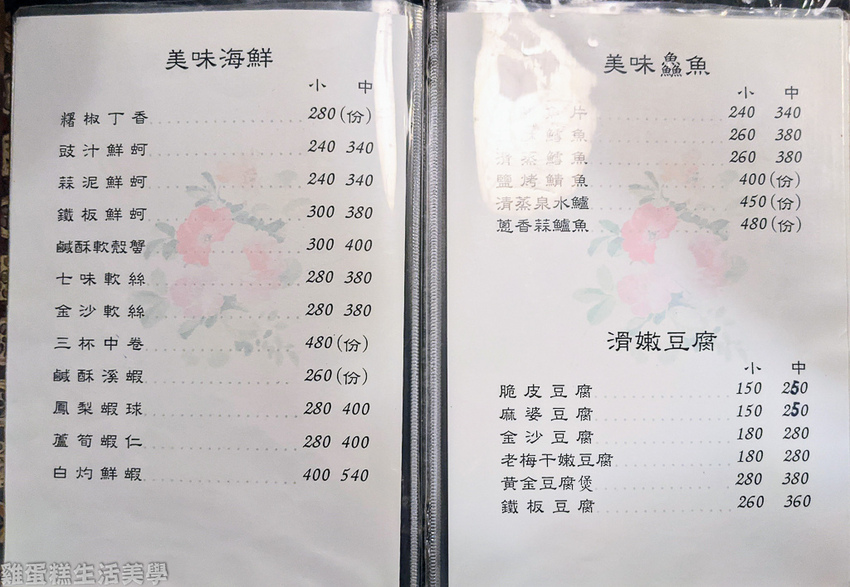 美味海鮮
小 中
糬椒丁香 280(份)
豉汁鮮蚵 240 340
蒜泥鮮蚵 240 340
鐵板鮮蚵 300 380
鹹酥軟殼蟹 300 400
七味軟絲 280 380
金沙軟絲 280 380
三杯中卷 480(份)
鹹酥溪蝦 260(份)
鳳梨蝦球 280 400
蘆筍蝦仁 280 400
白灼鮮蝦 400 540
美味鱻魚
小 中
片 240 340
魚 260 380
清蒸鱈魚 260 380
鹽烤鯖魚 400(份)
清蒸泉水鱸 450(份)
蔥香蒜鱸魚 480(份)
滑嫩豆腐
小 中
脆皮豆腐 150 250
麻婆豆腐 150 250
金沙豆腐 180 280
老梅干嫩豆腐 180 280
黃金豆腐煲 280 380
鐵板豆腐 260 360
雞蛋糕生活美學